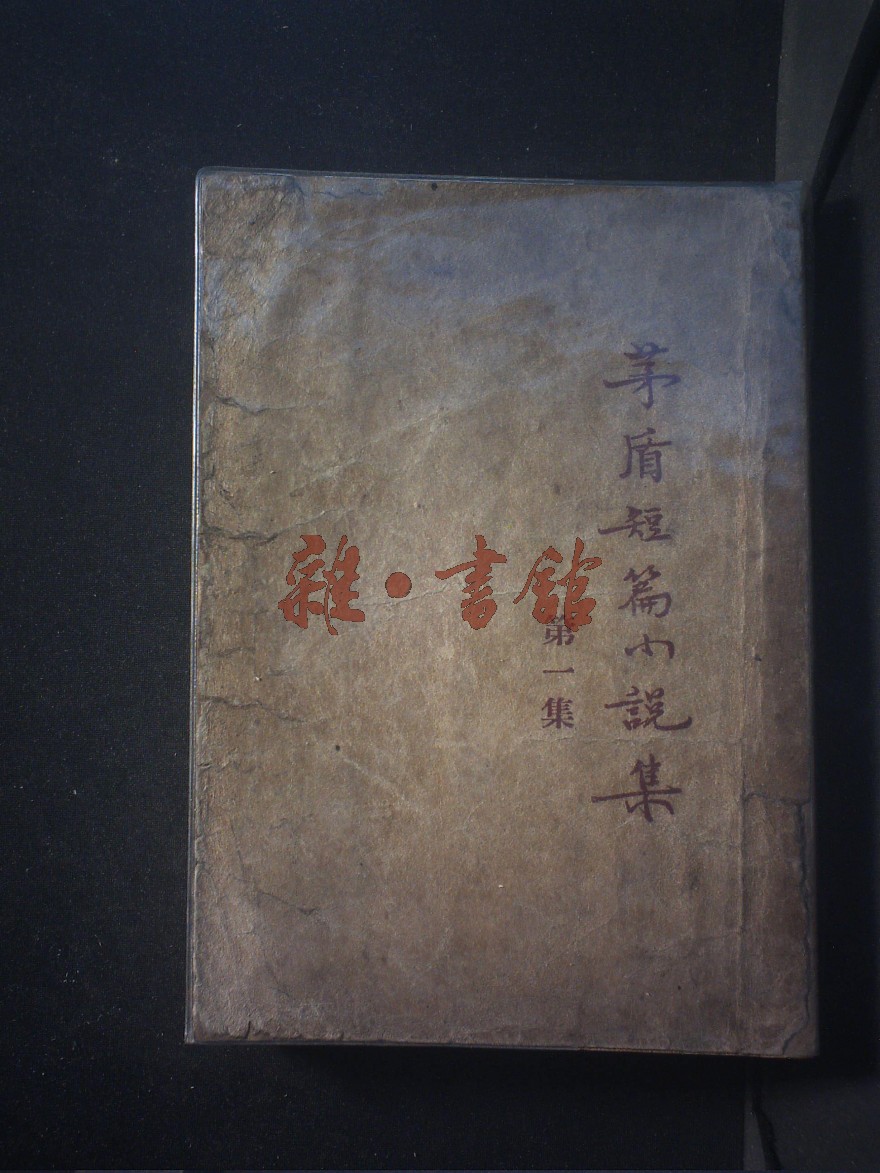 茅盾短篇小説集
第一集
雜·書館